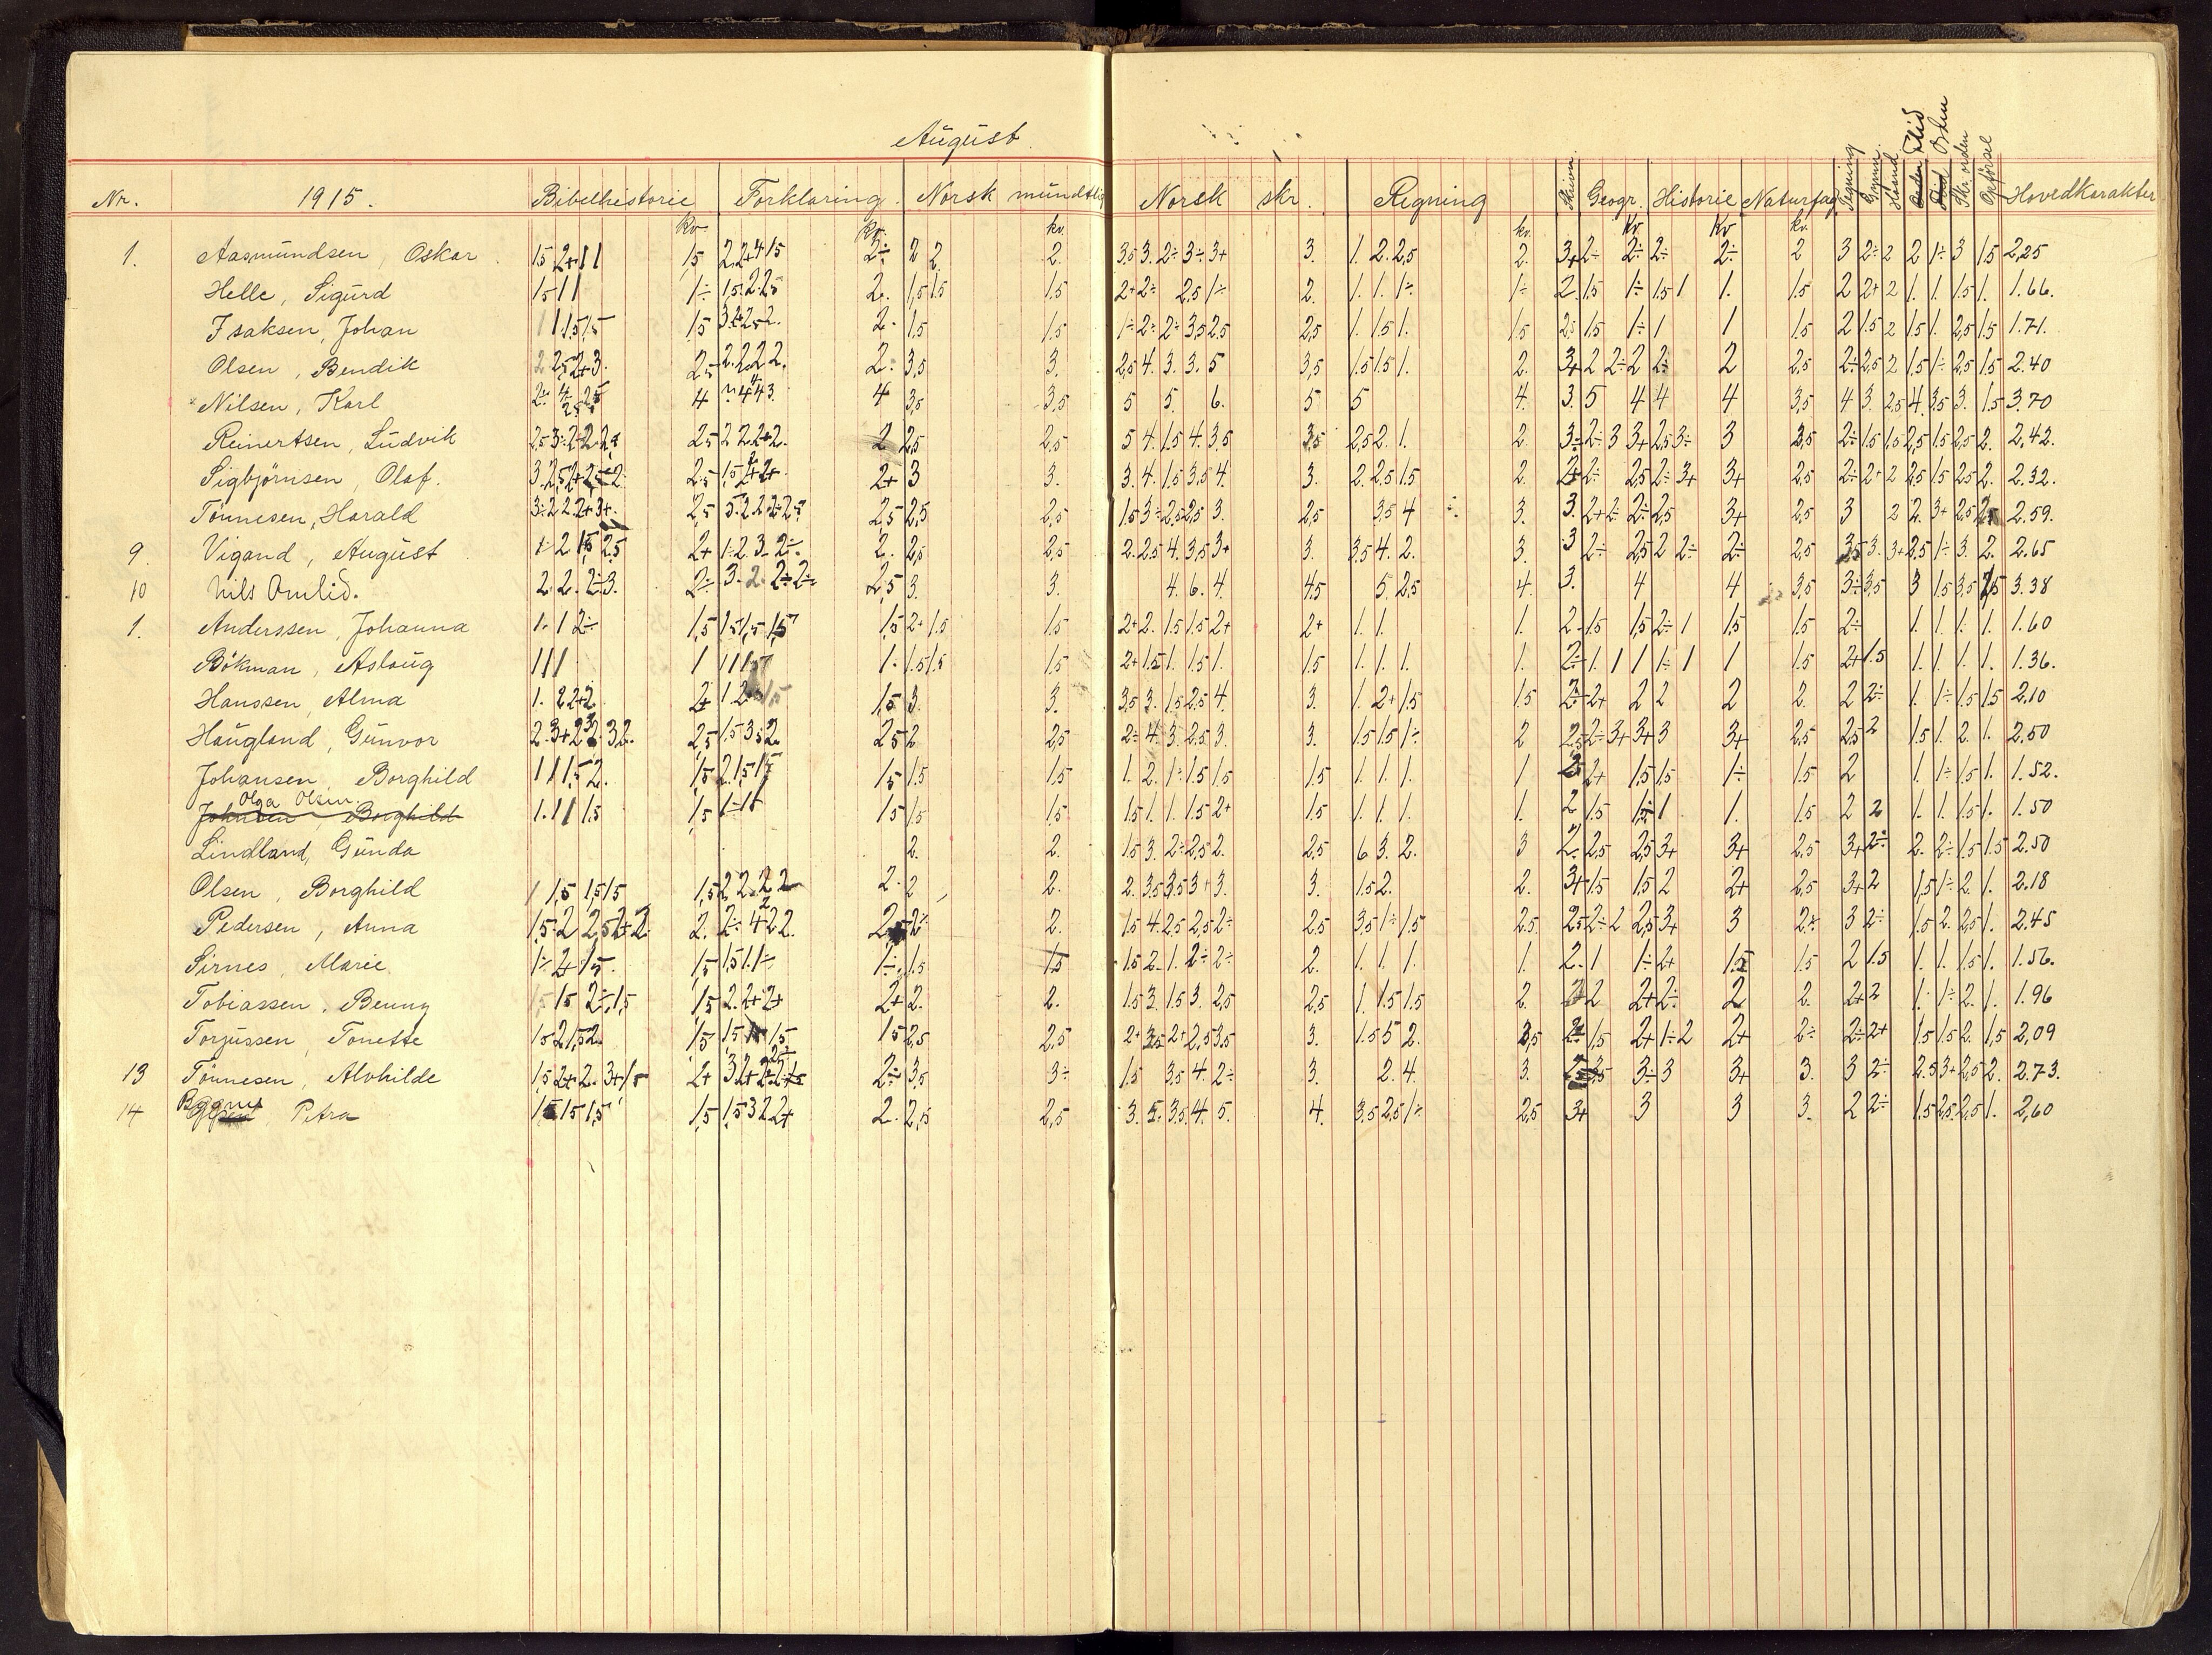 August
Nr. 1915. Bibelhistorie Forklaring. Norsk mündtlig Norsk skr. Regning Skrivn. Geogr. Historie Naturfag Tegning Gymn. Haand Flid Orden Skr. orden Opförsel Hovedkarakter
kv. kv. kv. kv. kv. kv. kv.
1. Aasmundsen, Oskar. 15 2+ 1 1 15 2÷ 2 2 2. 3,5 3. 2÷ 3÷ 3+ 3. 1. 2. 2,5 2. 3+ 2÷ 2÷ 2÷ 2÷ 2 3 2÷ 2 2 1÷ 3 1.5 2,25
Helle, Sigurd 15 1 1 1÷ 1,5 2 2,5 2. 1,5 1.5 1.5 2+ 2÷ 2.5 1÷ 2. 1. 1. 1÷ 1÷ 2. 1.5 1÷ 1.5 1 1. 1.5 2 2+ 2 1. 1. 1.5 1. 1.66.
Isaksen, Johan 1 1 1.5 1,5 1.5 2. 1,5 1.5 1÷ 2÷ 2÷ 3,5 2,5 2,5 1. 1.5 1. 1.5 1.5 1÷ 1 1 1.5 2 1.5 2 1.5 1. 2,5 1.5 1.71.
Olsen, Bendik 2 2,5 2+ 3. 2,5 2. 2 2 2. 2. 3,5 3. 2,5 4. 3. 3. 5 3,5 1.5 1.5 1. 2. 3+ 2 2÷ 2 2÷ 2 2,5 2÷ 2,5 2 1.5 1÷ 2,5 1.5 2.40
Nilsen, Karl 4 4 3,5 3,5 5 5. 6. 5 5 4. 3. 5 4 4 4 3,5 4 3. 2,5 4. 3,5 3. 1.5 3.70
Reinertsen, Ludvik 2,5 2 2 2+ 2. 2 2,5 2,5 5 4. 1.5 4. 3.5 3,5 2,5 2. 1. 2. 3÷ 2÷ 3 3+ 2,5 3÷ 3 2,5 2÷ 1.5 1.5 2,5 1.5 2,5 2. 2,42.
Sigbjörnsen, Olaf. 2,5 2+ 3 3. 3. 4. 1.5 3,5 4. 3. 2. 2.5 1.5 2. 2+ 2÷ 2,5 2÷ 3+ 3+ 2,5 2÷ 2+ 2 2,5 1.5 2,5 2. 2.32.
Tönnesen, Harald 3÷ 2 2. 2+ 3+. 2,5 2,5 2,5 2,5 1.5 3÷ 2,5 2,5 3. 2,5 3,5 4 3. 3. 2+ 2÷ 2÷ 2,5 3+ 2,5 3 2 2. 3+ 2,5 2.59.
9. Vigand, August 1÷ 2 1,5 2,5 2+ 1÷ 2. 3. 2÷ 2. 2,5 2,5 2. 2.5 4. 3,5 3+ 3. 3.5 4. 2. 3. 3 2÷ 2,5 2 2÷ 2÷ 2,5 3. 3+ 2.5 1÷ 3. 2. 2.65
10 Nils Omlid. 2. 2. 2÷ 3. 2÷ 3. 2. 2÷ 2÷ 2,5 3. 3. 4. 6. 4 4,5 5. 2,5 4. 3. 4 4 3,5 3÷ 3,5 3 1.5 3,5 3.38
1. Anderssen, Johanna 1. 1 2÷ 1,5 1,5 1,5 1,5 1,5 2+ 1.5 1.5 2+ 2. 1.5 1.5 2+ 2+ 1. 1. 1. 2. 1.5 1,5 2÷ 1 1,5 1.5 2÷ 1. 1. 1. 1. 1.60
Bökman, Aslaug 1 1 1 1 1 1 1. 1.5 1.5 1.5 2+ 1.5 1. 1.5 1. 1.5 1. 1. 1. 1. 2÷ 1. 1 1 1÷ 1 1 1.5 2+ 1.5 1. 1. 1. 1. 1.36.
Hanssen, Alma 1. 2 2+ 2 2+ 1 2 1,5 3. 3. 3,5 3. 1.5 2.5 4. 3. 1. 2+ 1.5 1.5 2÷ 2+ 2 2 2 2. 2 2÷ 1. 1÷ 1.5 1.5 2.10
Haugland, Gunvor 2,5 1.5 3 2,5 2 2,5 2÷ 4. 3. 2.5 3. 3. 1.5 1.5 1÷ 2 2,5 2÷ 3+ 3+ 3 3+ 2,5 2,5 2 1.5 1. 2. 1. 2.50
Johansen, Borghild 1 1 1,5 2. 1,5 2. 1,5 1,5 1,5 1.5 1.5 1. 2. 1÷ 1.5 1.5 1.5 1. 1. 1. 1 2+ 1.5 1.5 1÷ 1.5 2 1. 1÷ 1.5 1. 1.52.
Olga Olsen
Johnsen, Borghild 1. 1 1 1.5 1,5 1÷ 1,5 1.5 1.5 1.5 1.5 1. 1. 1.5 2+ 1.5 1. 1. 1. 1. 2 1.5 1÷ 1 1. 1.5 2 2 1. 1. 1.5 1. 1.50
Lindland, Gunda 2. 2. 1.5 3. 2÷ 2.5 2. 2,5 6 3. 2. 3 2. 2,5 2,5 3+ 3+ 2,5 3+ 2÷ 2. 2÷ 1.5 1.5 2.50
Olsen, Borghild 1 1,5 1,5 1,5 1,5 2 2. 2 2 2. 2 2. 2. 3.5 3.5 3+ 3. 3. 1.5 2. 2. 3+ 1.5 1.5 2 2+ 2,5 3+ 2 1,5 1÷ 2. 1. 2.18
Pedersen, Anna 1,5 2 2,5 2+ 2 2. 2÷ 4 2 2. 2÷ 2. 1.5 4. 2.5 2,5 2÷ 2,5 3,5 1÷ 1.5 2.5 2,5 2÷ 2 2,5 3+ 3 2÷ 3 2÷ 1.5 2. 2,5 1. 2.45
Sirnes, Marie 1÷ 2+ 1,5. 1,5 1,5 1. 1÷ 1÷ 1.5 1.5 1.5 2. 1. 2÷ 2÷ 2. 1. 1. 1. 1. 2. 1 1÷ 2+ 1.5 1.5 2 1.5 1. 1. 1.5 1. 1.56.
Tobiassen, Benny 1.5 2÷ 1,5 1,5 2. 2+ 2+ 2+ 2. 2. 1.5 3. 1.5 3. 2,5 2,5 1. 1.5 1.5 2. 2 2+ 2÷ 2 2. 2+ 2 1. 1÷ 2. 1. 1.96
Torjussen, Tonette 1,5 2 1,5 2. 1,5 1,5 2,5 2,5 2+ 3,5 2+ 2,5 3,5 3. 1.5 5 2. 2÷ 1,5 2+ 1÷ 2 2+ 2÷ 2÷ 2+ 1.5 1.5 2. 1,5 2,09
13 Tönnesen, Alvhilde 1,5 2+ 2. 3+ 1,5 2+ 2÷ 3,5 3÷ 1.5 3,5 4. 2÷ 3. 2. 4. 3. 3÷ 3 3+ 3. 3 2÷ 2.5 3+ 2,5 2. 2.73.
14 Petra 1,5 1,5 1,5 1,5 1,5 3 2 2+ 2. 2,5 2,5 3. 5. 3,5 4. 5. 4. 3,5 2,5 1÷ 2,5 3+ 3 3 3. 2 2÷ 1.5 2,5 2,5 1. 2,60